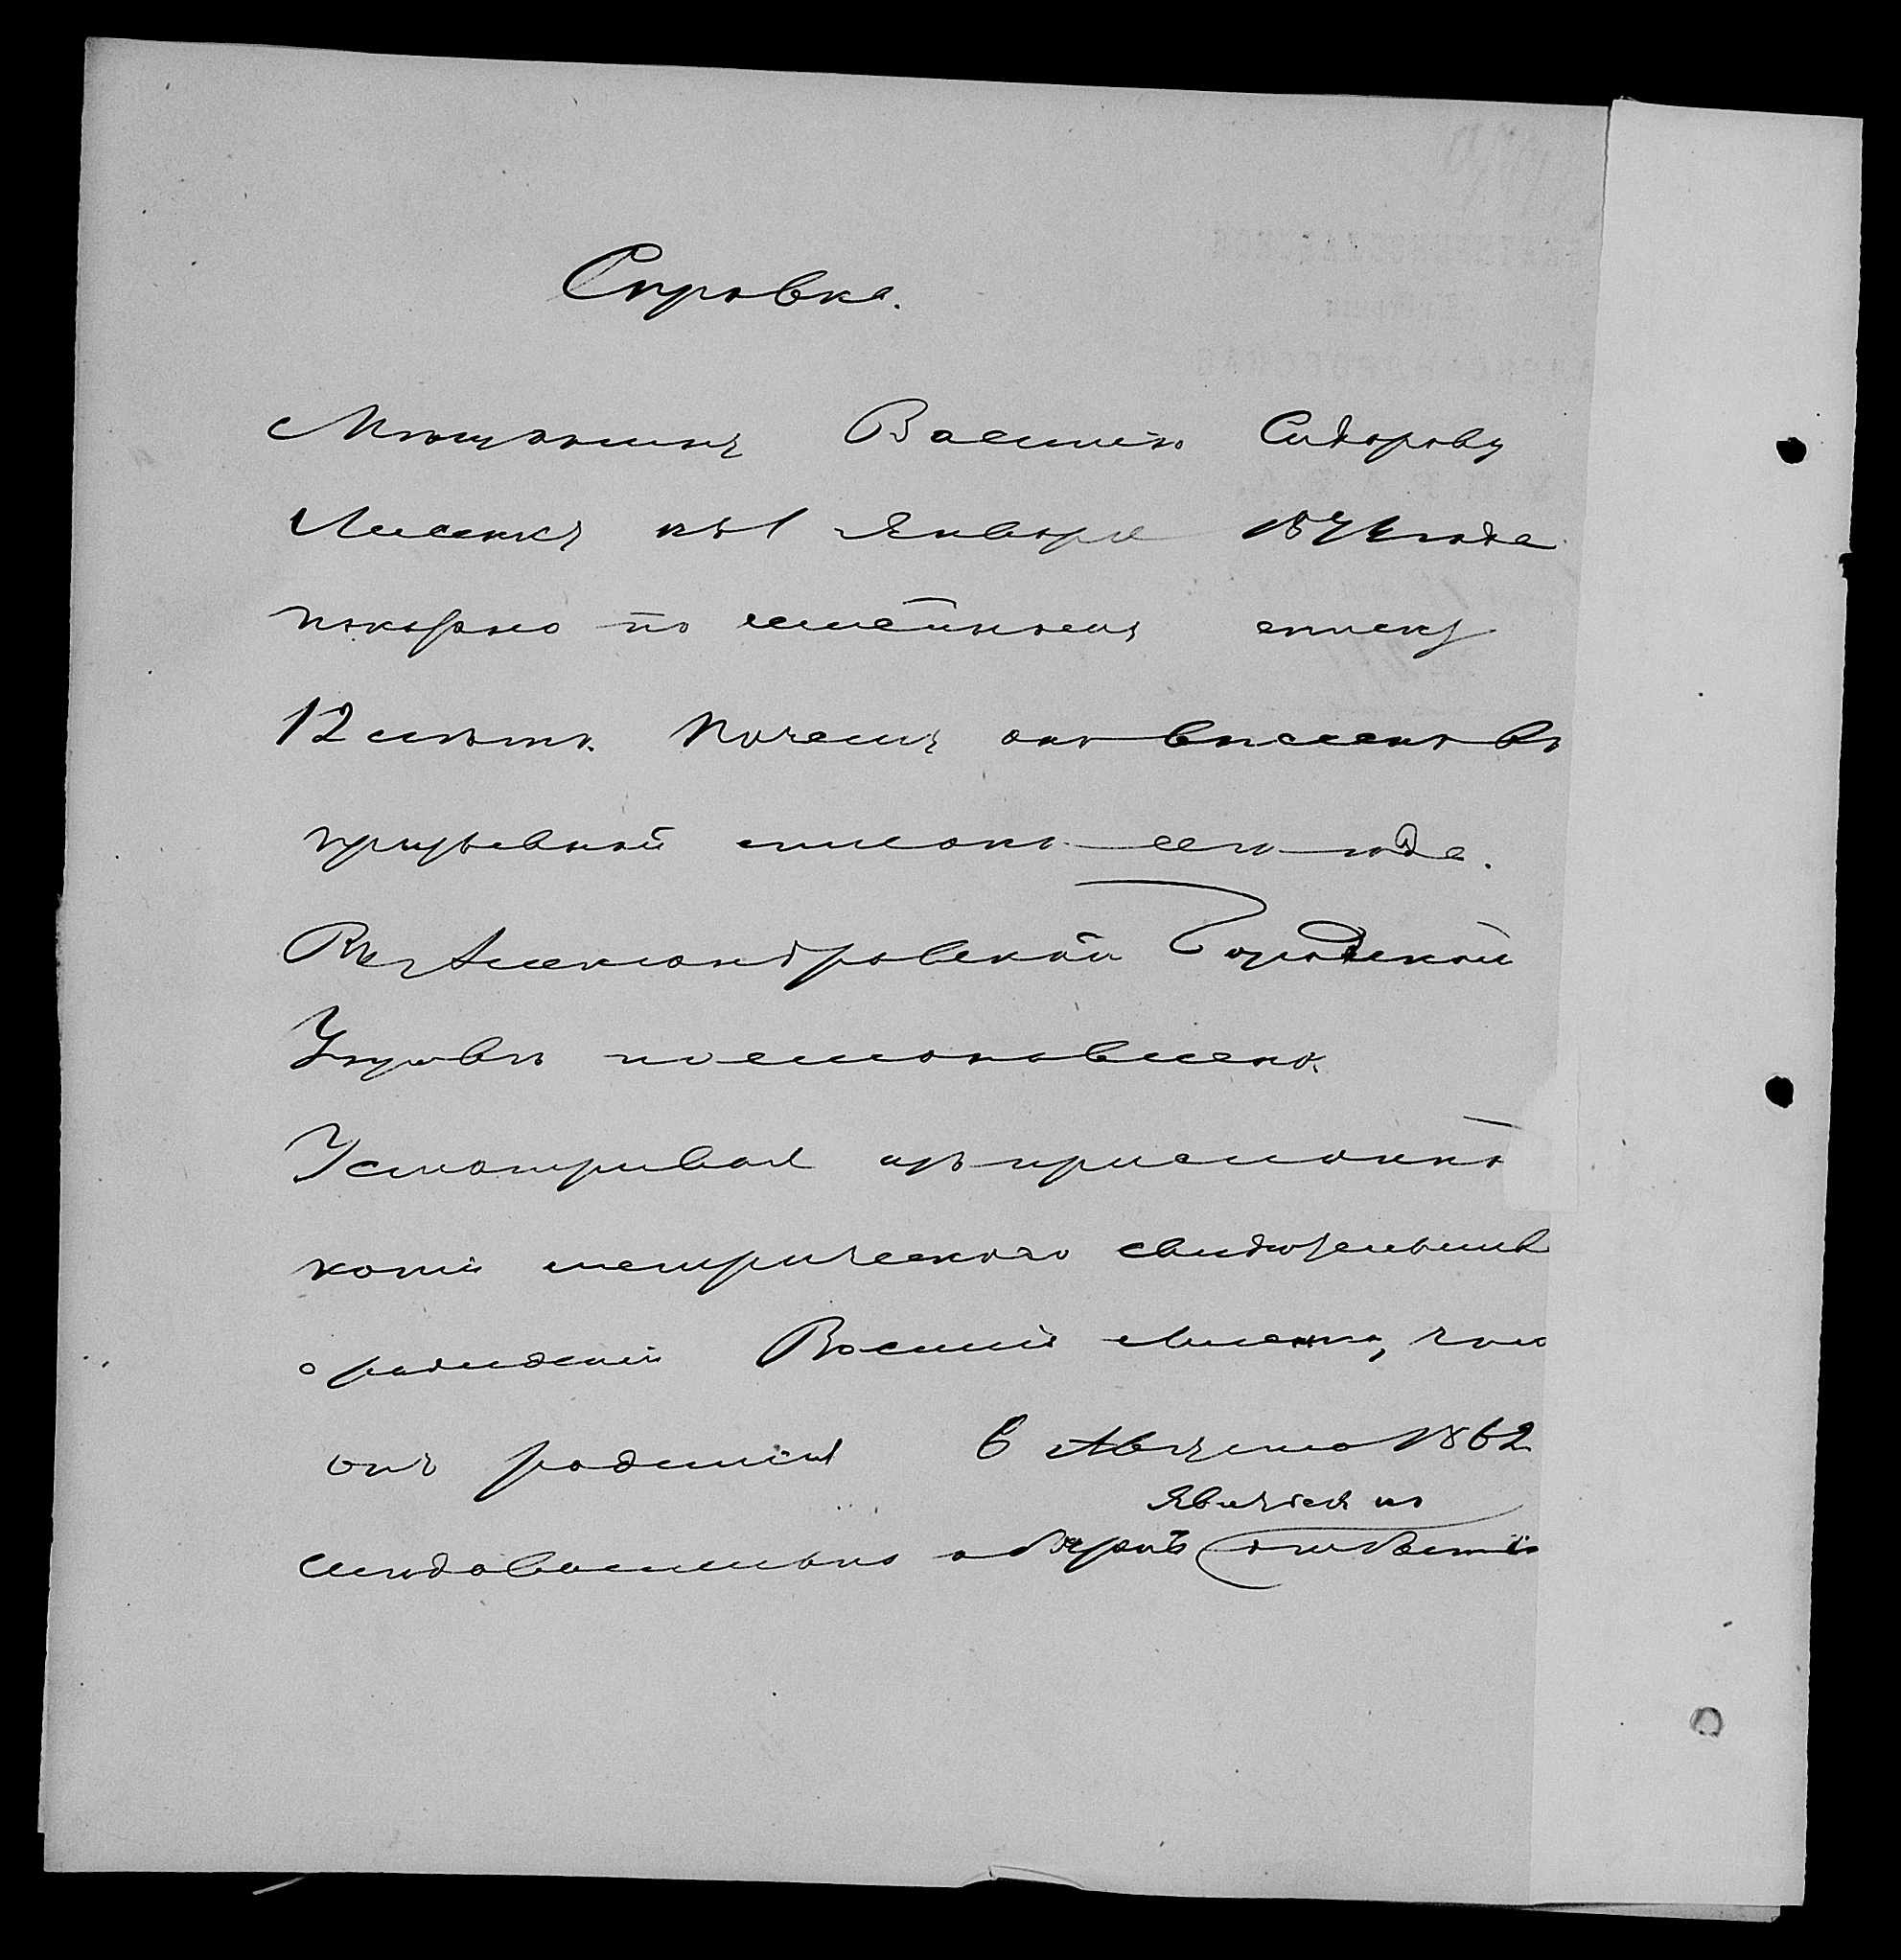 Справка.
Мѣщанину Василію Сидорову
Лисенку къ 1 Января 1874 года
показано по семейному списку
12 лѣтъ. Почему онъ внесенъ въ
призывной списокъ сего года.
Въ Александровской Городской
Управѣ постановлено:
Усматривая изъ присланной
копіи метрическаго свидѣтельств
о рожденіи Василія Лисенка, что
онъ родился 6 Августа 1862
явился къ
слѣдовательно